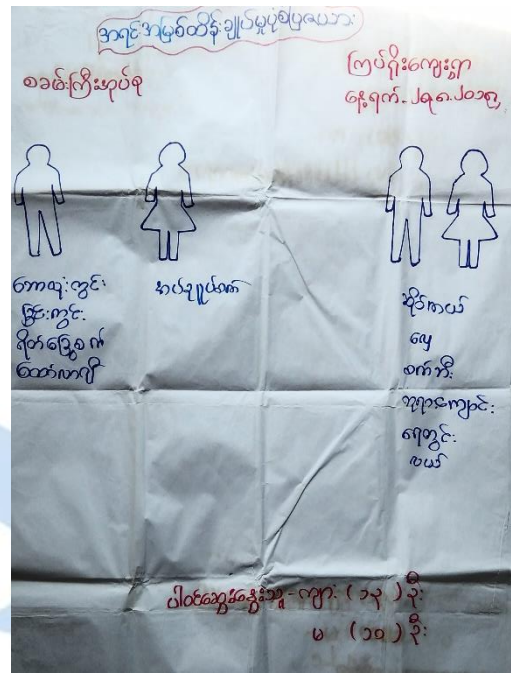 အရင်းအမြစ်ထိန်းချုပ်မှုပုံစံပြဇယား
စခမ်းကြီးအုပ်စု
ကြပ်ရိုးကျေးရွာ
နေ့ရက်-၂၅.၈.၂၀၁၅
ဘောလုံးကွင်း
ခြင်းကွင်း
ရိတ်ခြွေစက်
ထော်လာဂျီ
အပ်ချုပ်စက်
ဆိုင်ကယ်
လှေ
စက်ဘီး
ဘုရားကျောင်း
ရေတွင်း
လယ်
ပါဝင်ဆွေးနွေးသူ-ကျား (၁၃) ဦး
မ (၁၁) ဦး